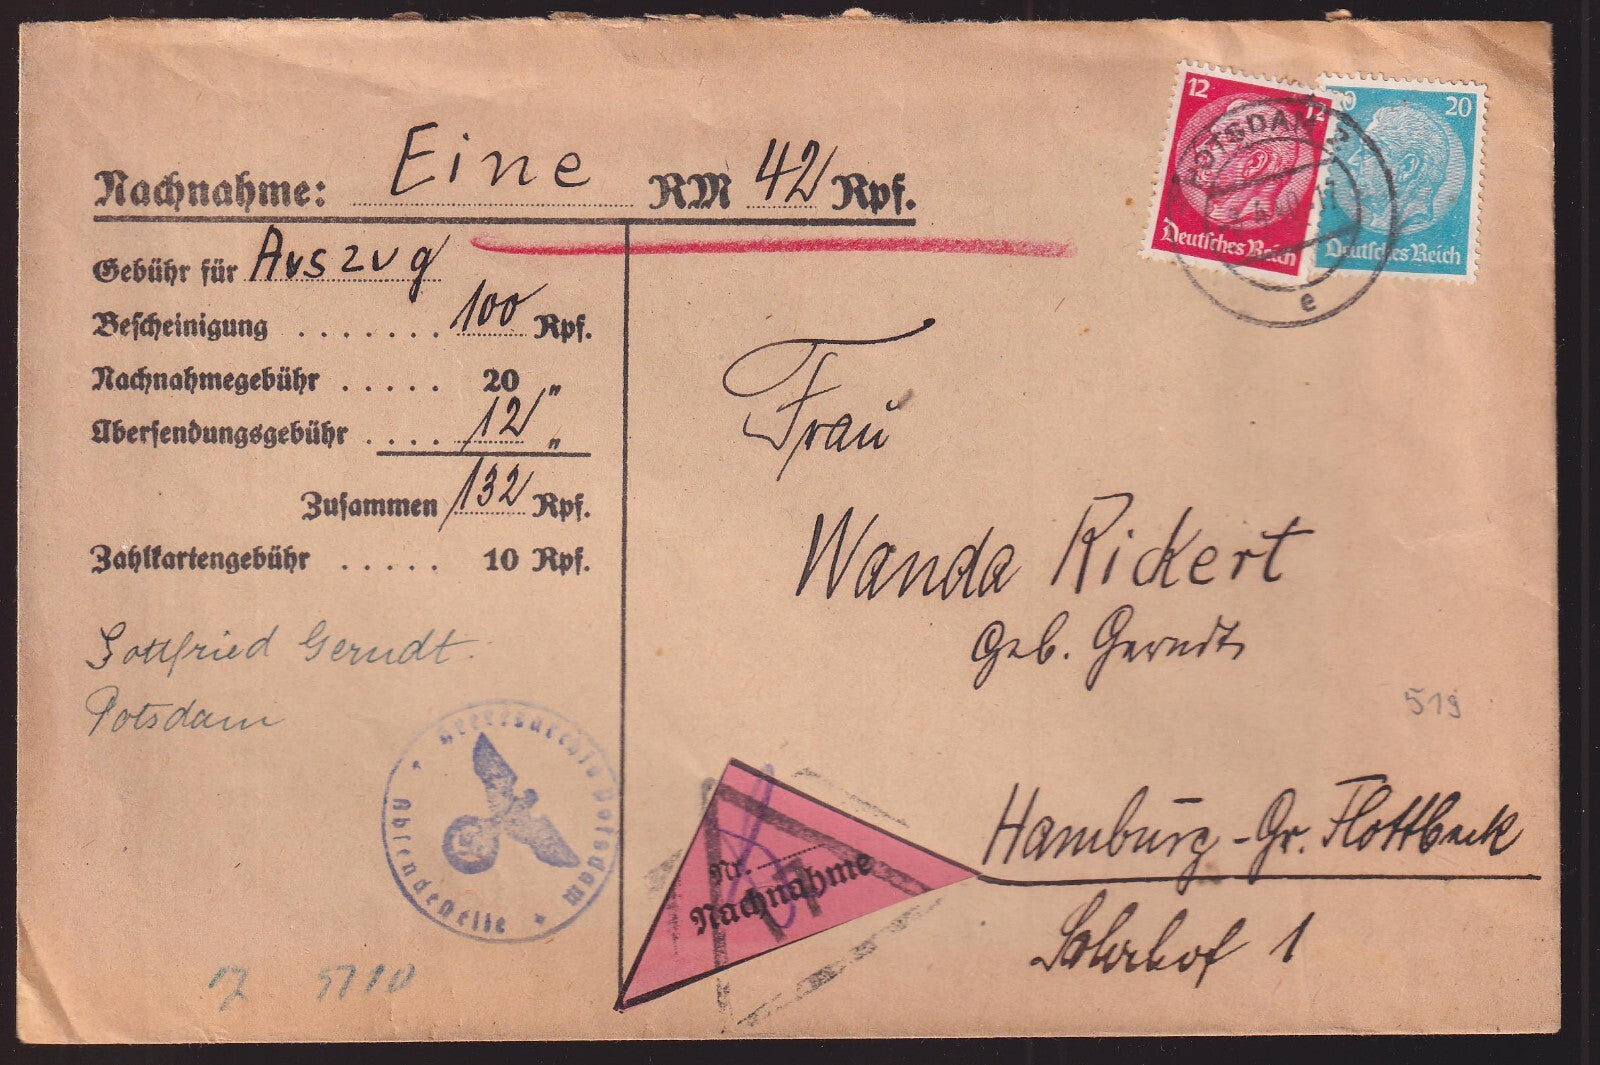 12 12
20 20
Deutsches Reich Deutsches Reich
POTSDAM 2
e
Nachnahme: Eine RM 42 Rpf.
Gebühr für Auszug
Bescheinigung ....... 100 Rpf.
Nachnahmegebühr ..... 20 "
Übersendungsgebühr .... 12 "
Zusammen 132 Rpf.
Zahlkartengebühr ..... 10 Rpf.
Gottfried Gerndt.
Potsdam
Heeresarchiv Potsdam
Absendestelle
Frau
Wanda Rickert
geb. Gerndt
519
Hamburg-Gr. Flottbeck
Nr.
Nachnahme